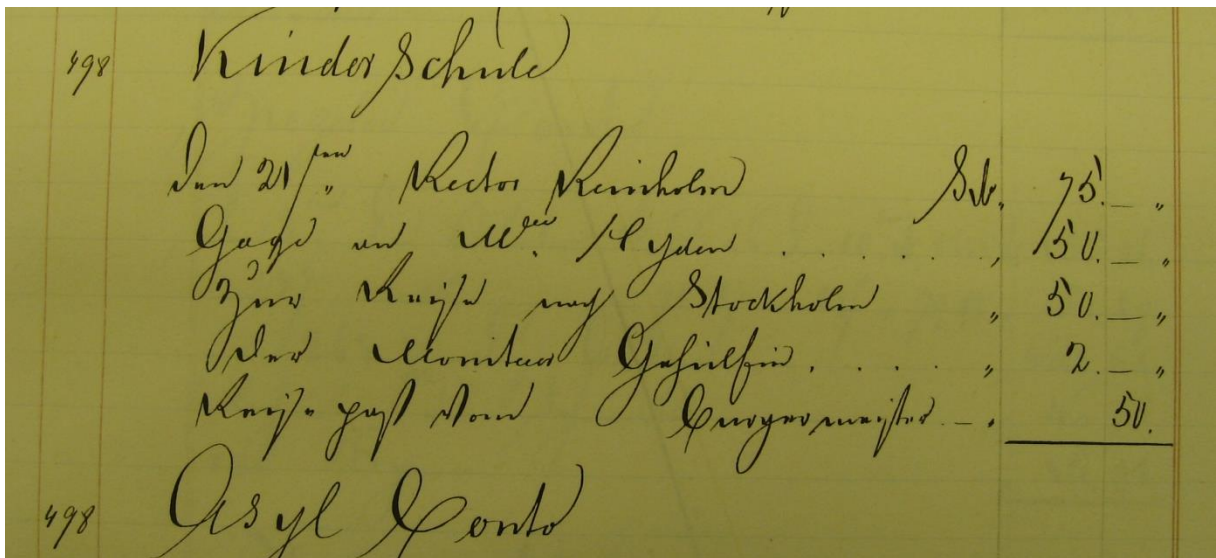 498 Kinder Schule
Den 21sten „ Rector Reinholm Srb. 75. — „
Gage an Mlle. Hyden . . . . . . „ 50. — „
Zur Reise nach Stockholm „ 50. — „
Der Gehülfin . . . . „ 2. — „
Reise pass vom Burgermeister — „ 50.
498 Asyl Conto